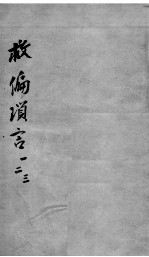 救偏瑣言 一二三